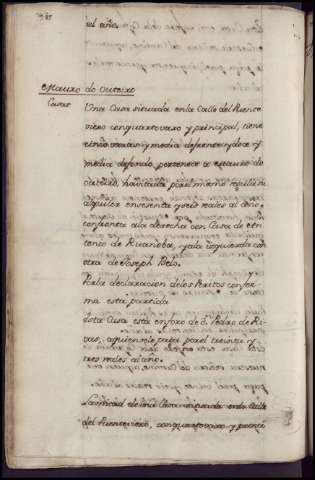 al año.
Mauro do Outeiro
Casas
Una Casa situada en la Calle del Puente
viero con quarto vaxo y principal, tiene
cinco varas y media de frente, y doce y
media de fondo, pertenece a Mauro do
Outeiro, havitada por el mismo regulan su
alquiler en treinta y seis reales al año,
confronta a la derecha con Casa de An
tonio de Ruanoba, y a la izquierda con
otra de Joseph Pelo.
Por la declaracion de los Peritos confor
ma esta partida
Esta Casa está en foro de D.n Pedro de Ri
vas, a quien se le paga por el treinta y
tres reales al año.
La mitad de una Casa situada en la Calle
del Puente viero, con quarto vaxo, y princi